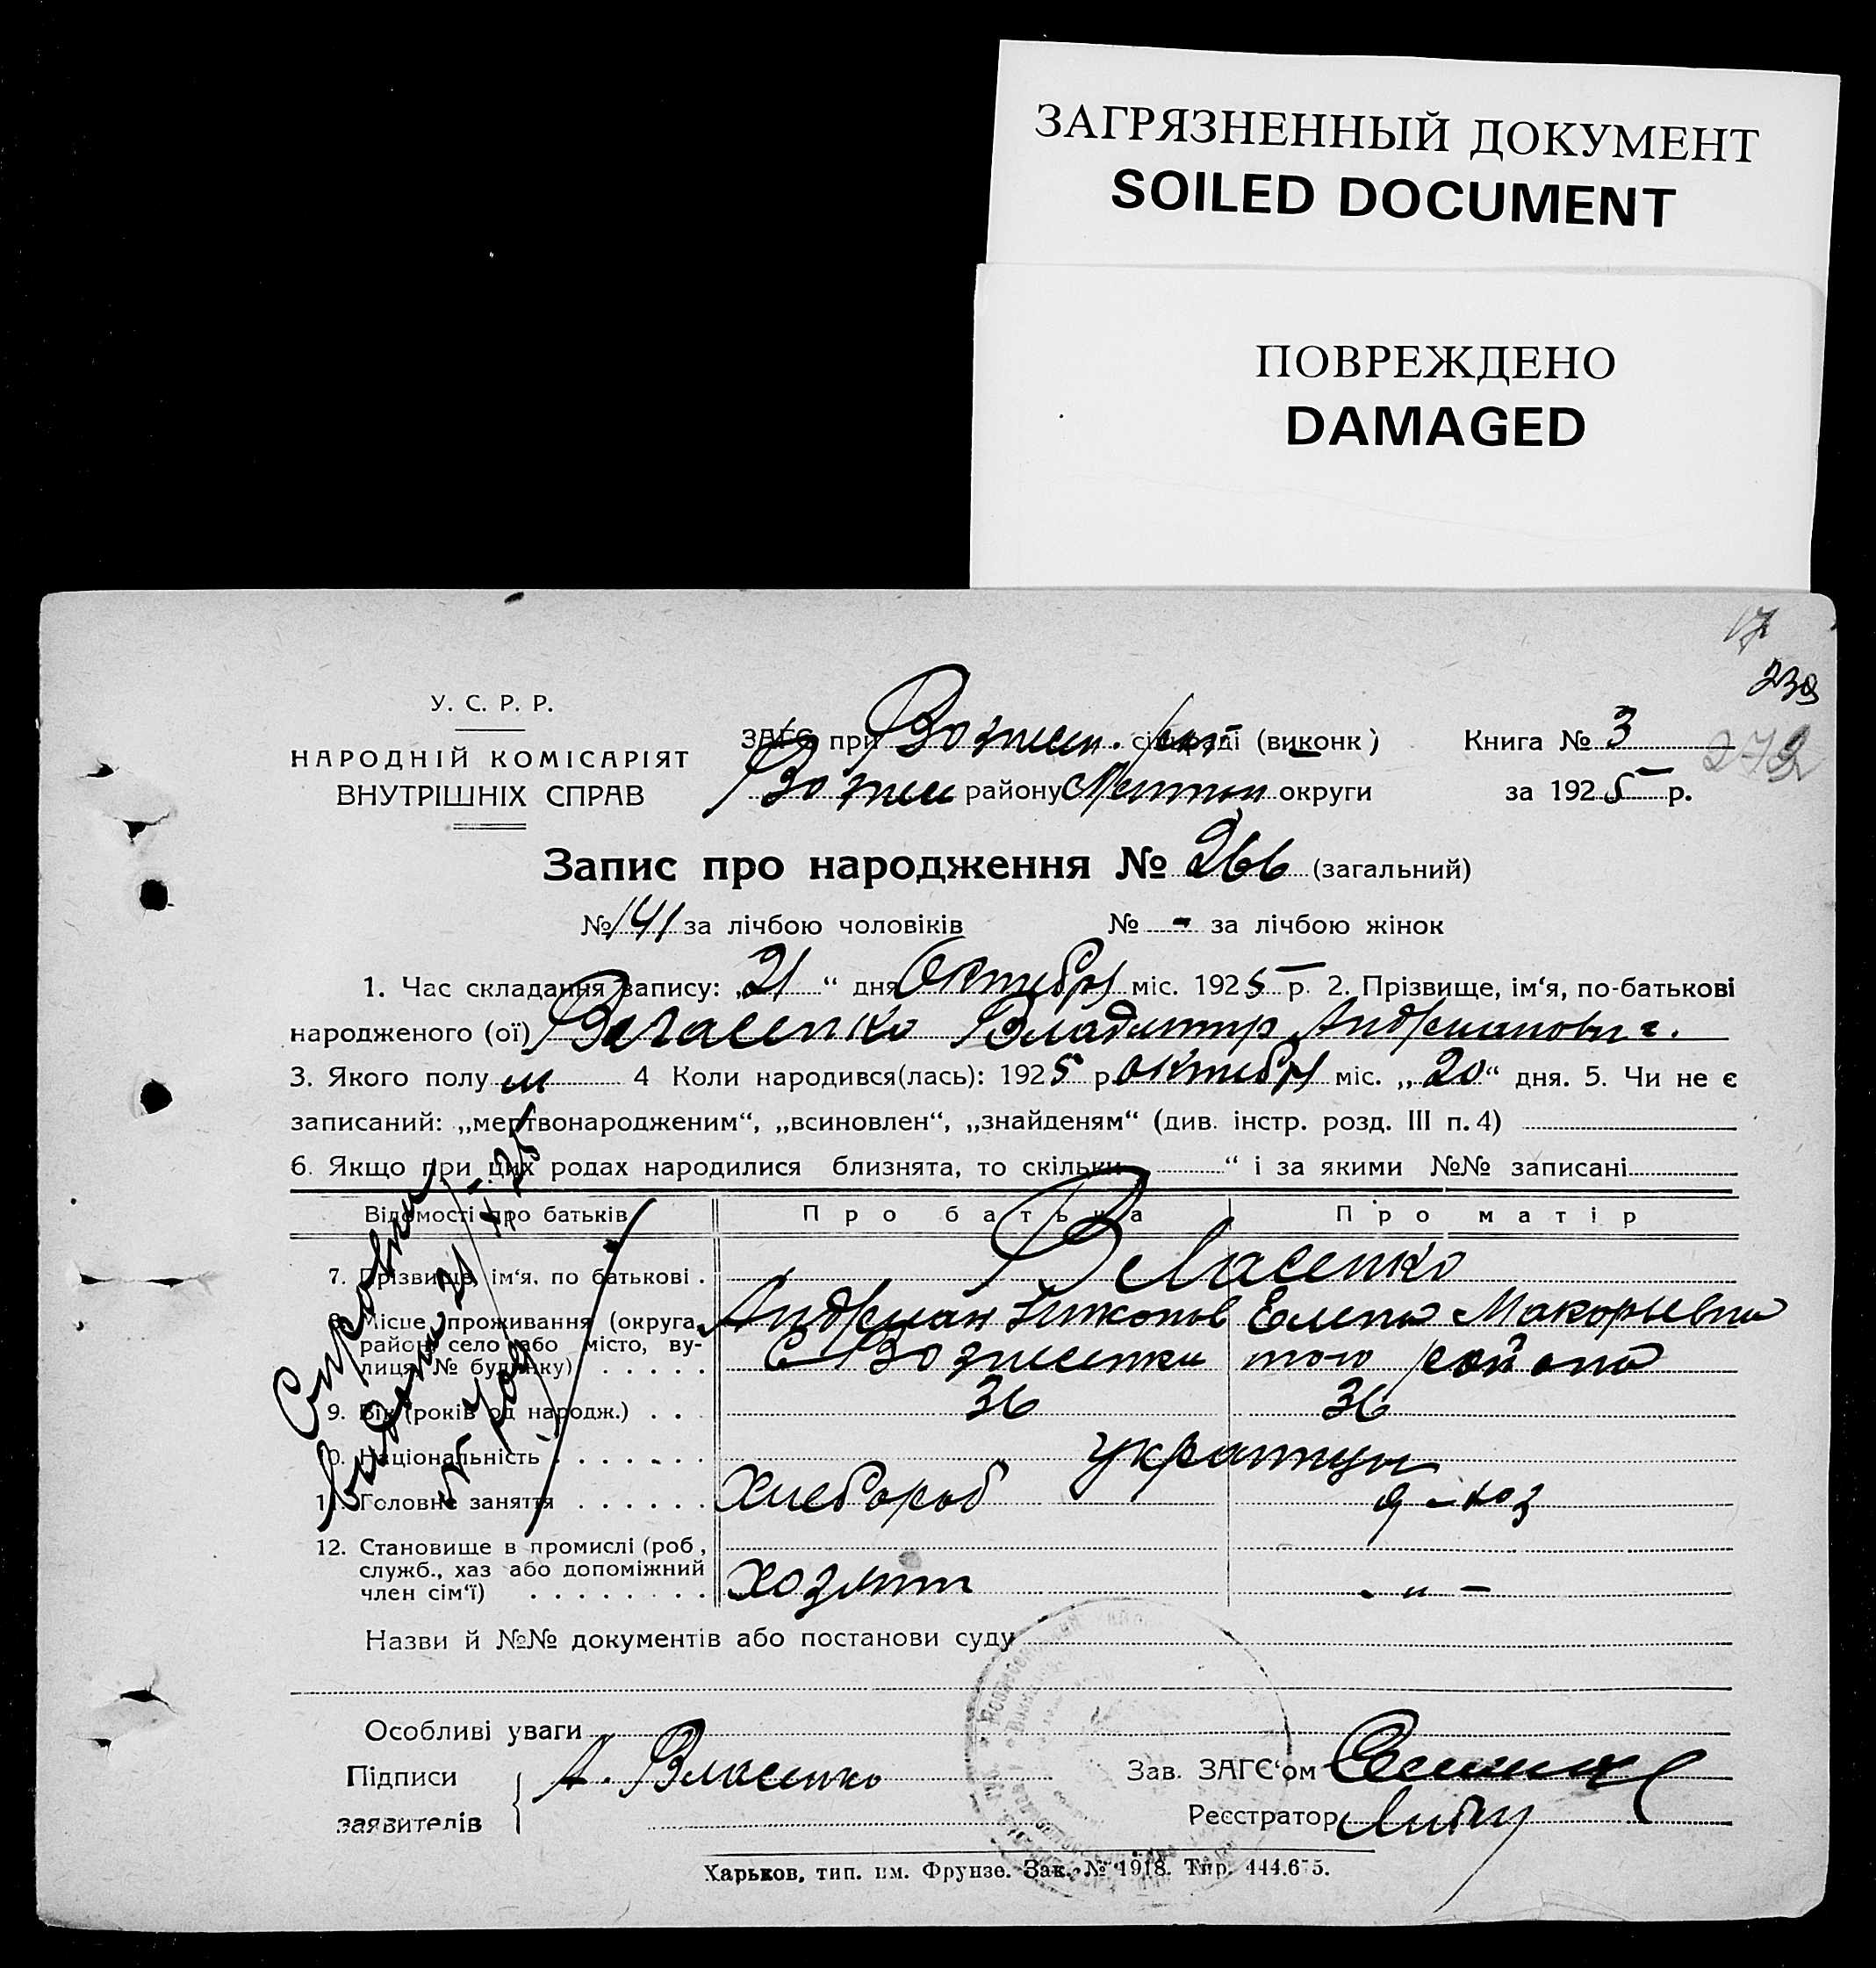 ЗАГРЯЗНЕННЫЙ ДОКУМЕНТ
SOILED DOCUMENT
ПОВРЕЖДЕНО
DAMAGED
17
239
272
У. С. Р. Р.
НАРОДНІЙ КОМІСАРІЯТ
ВНУТРІШНІХ СПРАВ
ЗАГС при Вознесен. рай сільраді (виконк)
Книга № 3
Вознес району Мелитоп округи
за 1925 р.
Запис про народження № 266 (загальний)
№ 141 за лічбою чоловіків № - за лічбою жінок
1. Час складання запису: „21“ дня Октября міс. 1925 р. 2. Прізвище, ім‘я, по-батькові
народженого (ої) Власенко Владимир Андрианович.
3. Якого полу м 4 Коли народився(лась): 1925 р октября міс. „20“ дня. 5. Чи не є
записаний: „мертвонародженим“, „всиновлен“, „знайденям“ (див. інстр. розд. III п. 4)
6. Якщо при цих родах народилися близнята, то скільки “ і за якими №№ записані
Відомості про батьків Про батька Про матір
7. Прізвище, ім‘я, по батькові . Власенко
Андриан Тихонов Елена Макарьевна
8. Місце проживання (округа, район, село або місто, вулиця, № будинку) . . . . . с Вознесенки того района
9. Вік (років од народж.) . . . 36 36
10. Національність . . . . . . . украинцы
11. Головне заняття . . . . . . Хлебороб д-хоз
12. Становище в промислі (роб,
служб., хаз або допоміжний
член сім‘ї) . . . . . . . . Хозяин - " -
Справка
выдана 21/X-25
Назви й №№ документів або постанови суду
Особливі уваги
Підписи
заявителів
А. Власенко
Зав. ЗАГС‘ом
Реєстратор
Харьков, тип. им. Фрунзе. Зак. № 1918. Тир. 444.675.